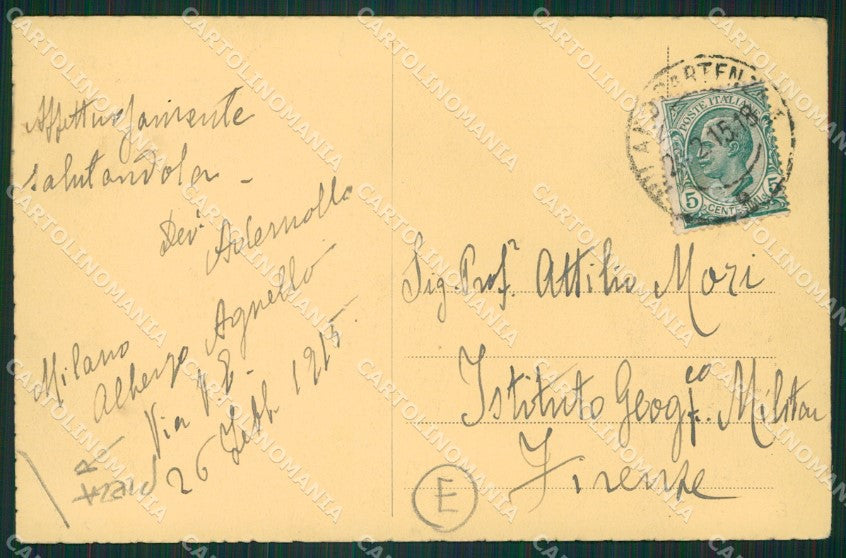 Affettuosamente
salutandola -
Dev.
Agnello
Milano
Albergo Agnello
Via V. E.
26 Febb. 1915.
Sig. Prof.r Attilio Mori
Istituto Geogf.co Militar
Firenze
E
POSTE ITALIANE
5 CENTESIMI 5
PARTENZA
MILANO
2.15.18
CARTOLINOMANIA